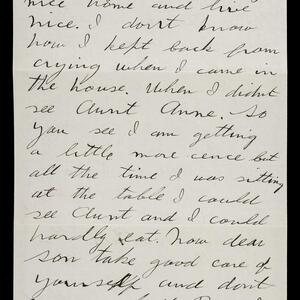 nice home and live
nice. I dont know
how I kept back from
crying when I came in
the house. When I didnt
see Aunt Anne. So
you see I am getting
a little more cence but
all the time I was sitting
at the table I could
see Aunt and I could
hardly eat. now dear
son take good care of
yourself and dont